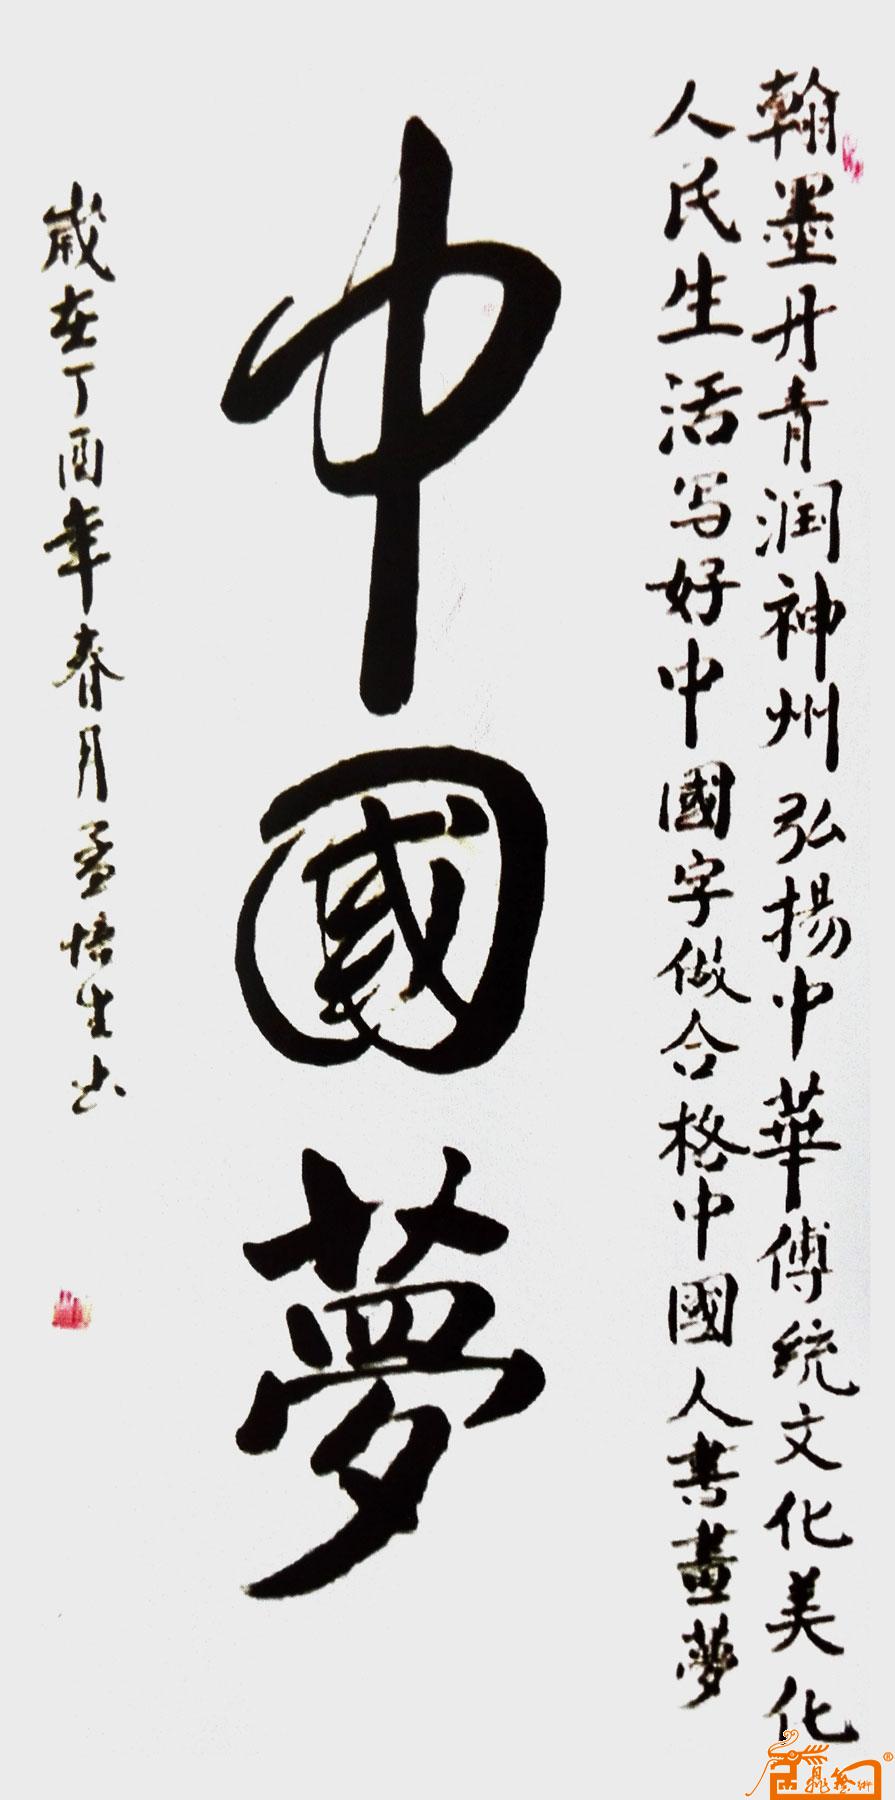 翰墨丹青润神州弘揚中華傳統文化美化
人民生活写好中國字做合格中國人書畫夢
中國夢
歲在丁酉年春月孟悟生书